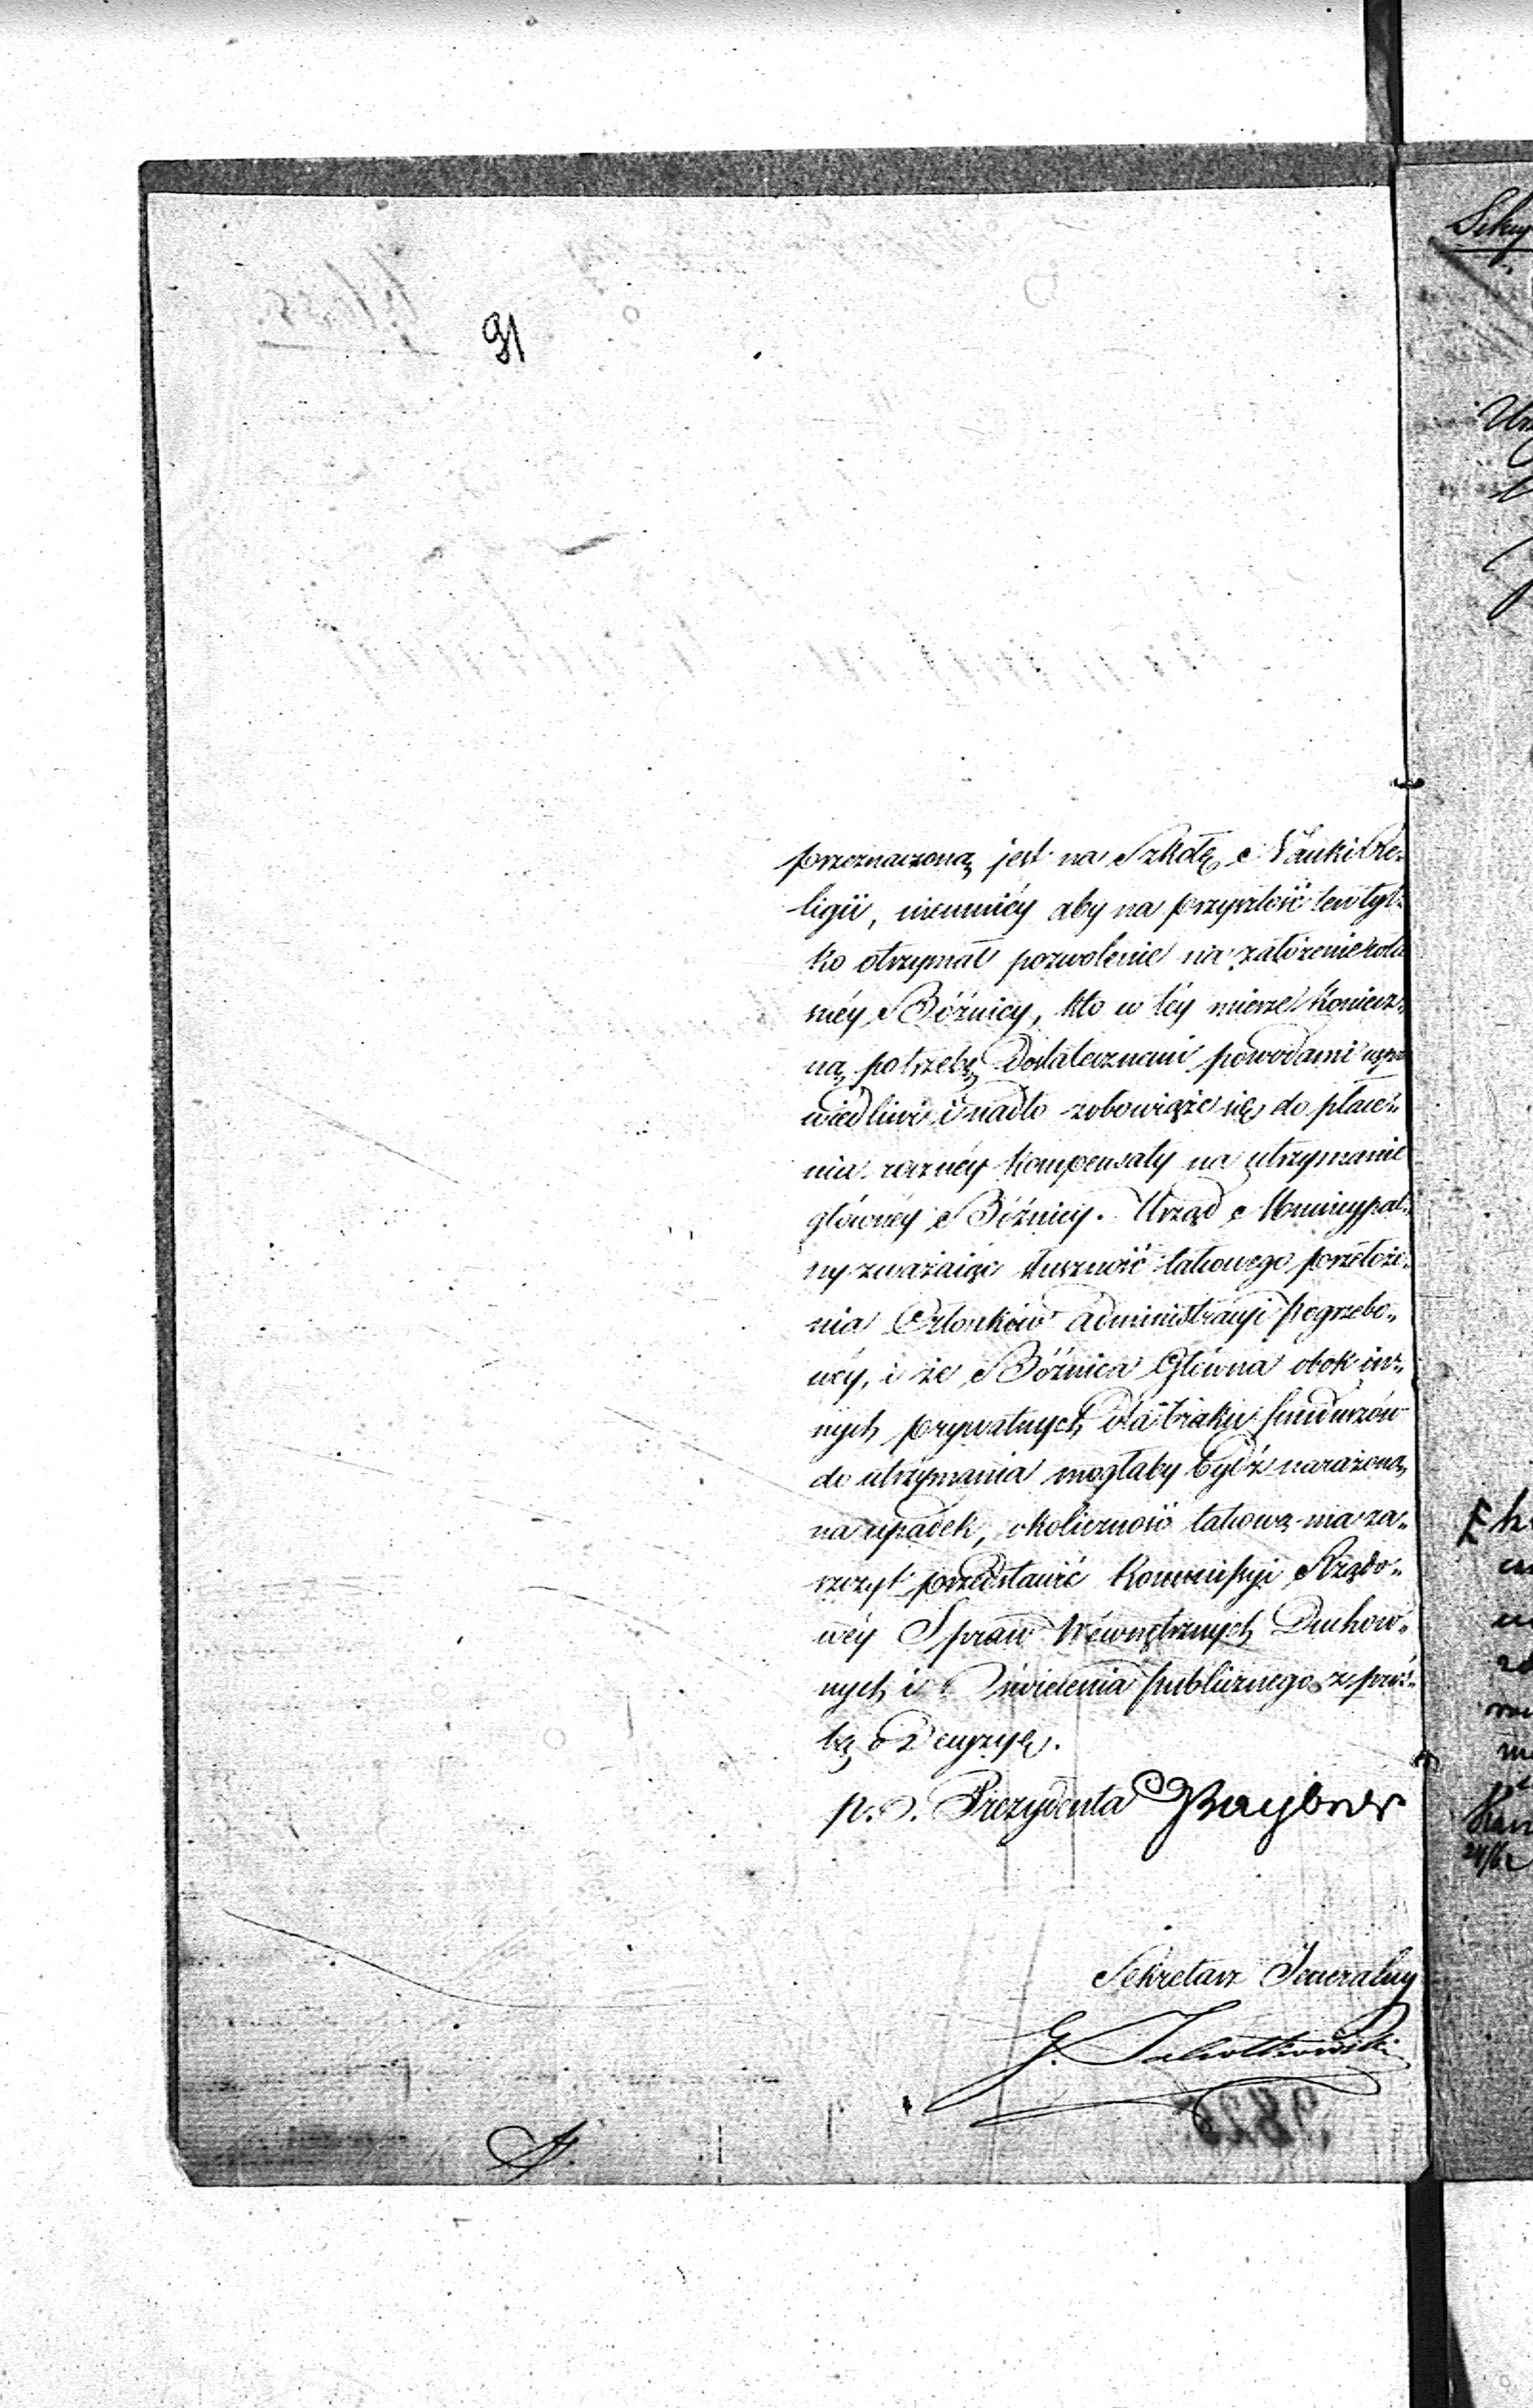 91
przeznaczoną jest na Szkołę Nauki Re„
ligii, niemniéy aby na przyszłość ten tyl„
ko otrzymał pozwolenie na założenie
néy Bóźnicy, kto w téy mierze koniecz„
ną potrzebę dostatecznemi powodami uspra
wiedliwi i nadto zobowiąże się do płace„
nia roczney kompensaty na utrzymanie
głównéy Bóźnicy. Urząd Municypal„
ny zważaiąc słuszność takowego przełoże„
nia Członków administracyi pogrzebo„
wéy, i że Bóźnica Główna obok in„
nych prywatnych dla braku funduszów
do utrzymania mogłaby bydź narażoną
na upadek, okoliczność takową ma za„
szczyt przedstawić Kommissyi Rządo„
wéy Spraw Wewnętrznych Duchow„
nych i Oświecenia publicznego z proź„
bą o Decyzyę.
p. o. Prezydenta Graybner
Sekretarz Jeneralny
G.